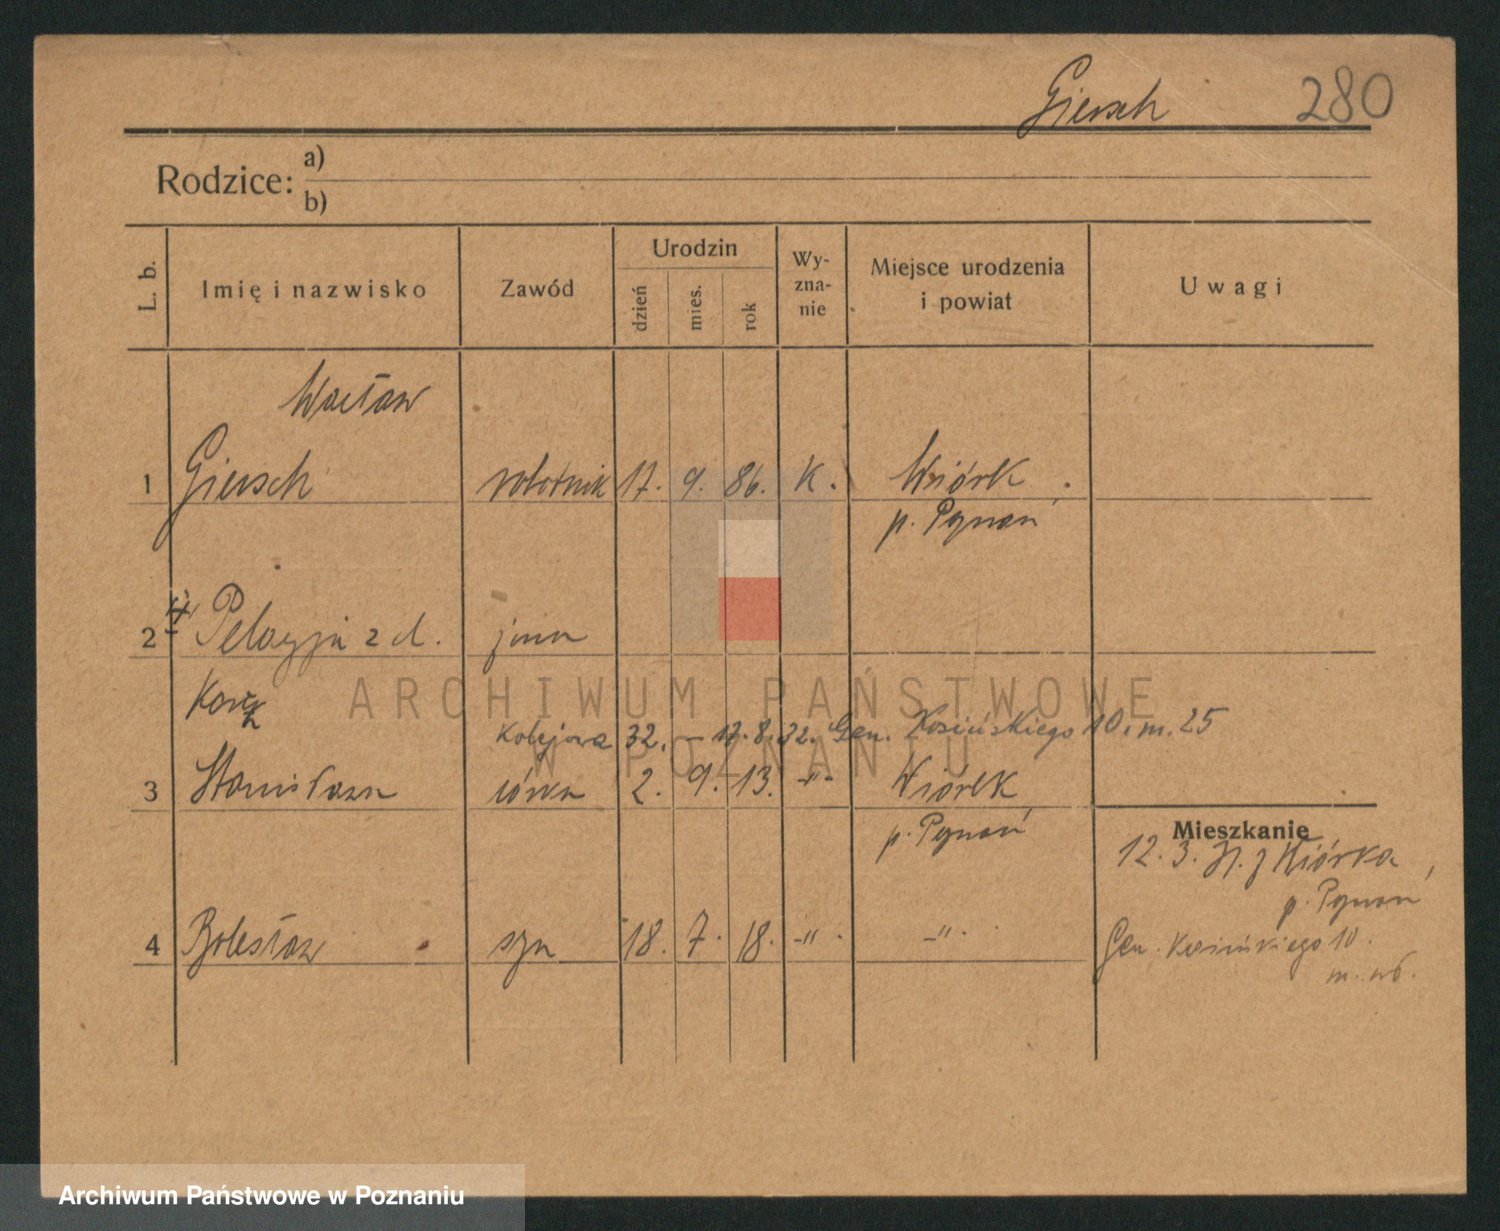 Giersch 280
Rodzice: a)
b)
L. b. Imię i nazwisko Zawód Urodzin dzień mies. rok Wy-zna-nie Miejsce urodzenia i powiat Uwagi
Wacław
1 Giersch robotnik 17. 9. 86. K. Wiórek
p. Poznań
2 Pelagja z d. żona
Kolejowa 32. – 17.8.32. Gen. Kosińskiego 10. m. 25
3 Stanisława córka 2. 9. 13. -"- Wiórek
p. Poznań
Mieszkanie
12. 3. z Wiórka
p. Poznań
4 Bolesław syn 18. 7. 18. -"- -"-
Gen. Kosińskiego 10.
m.
ARCHIWUM PAŃSTWOWE
W POZNANIU
Archiwum Państwowe w Poznaniu